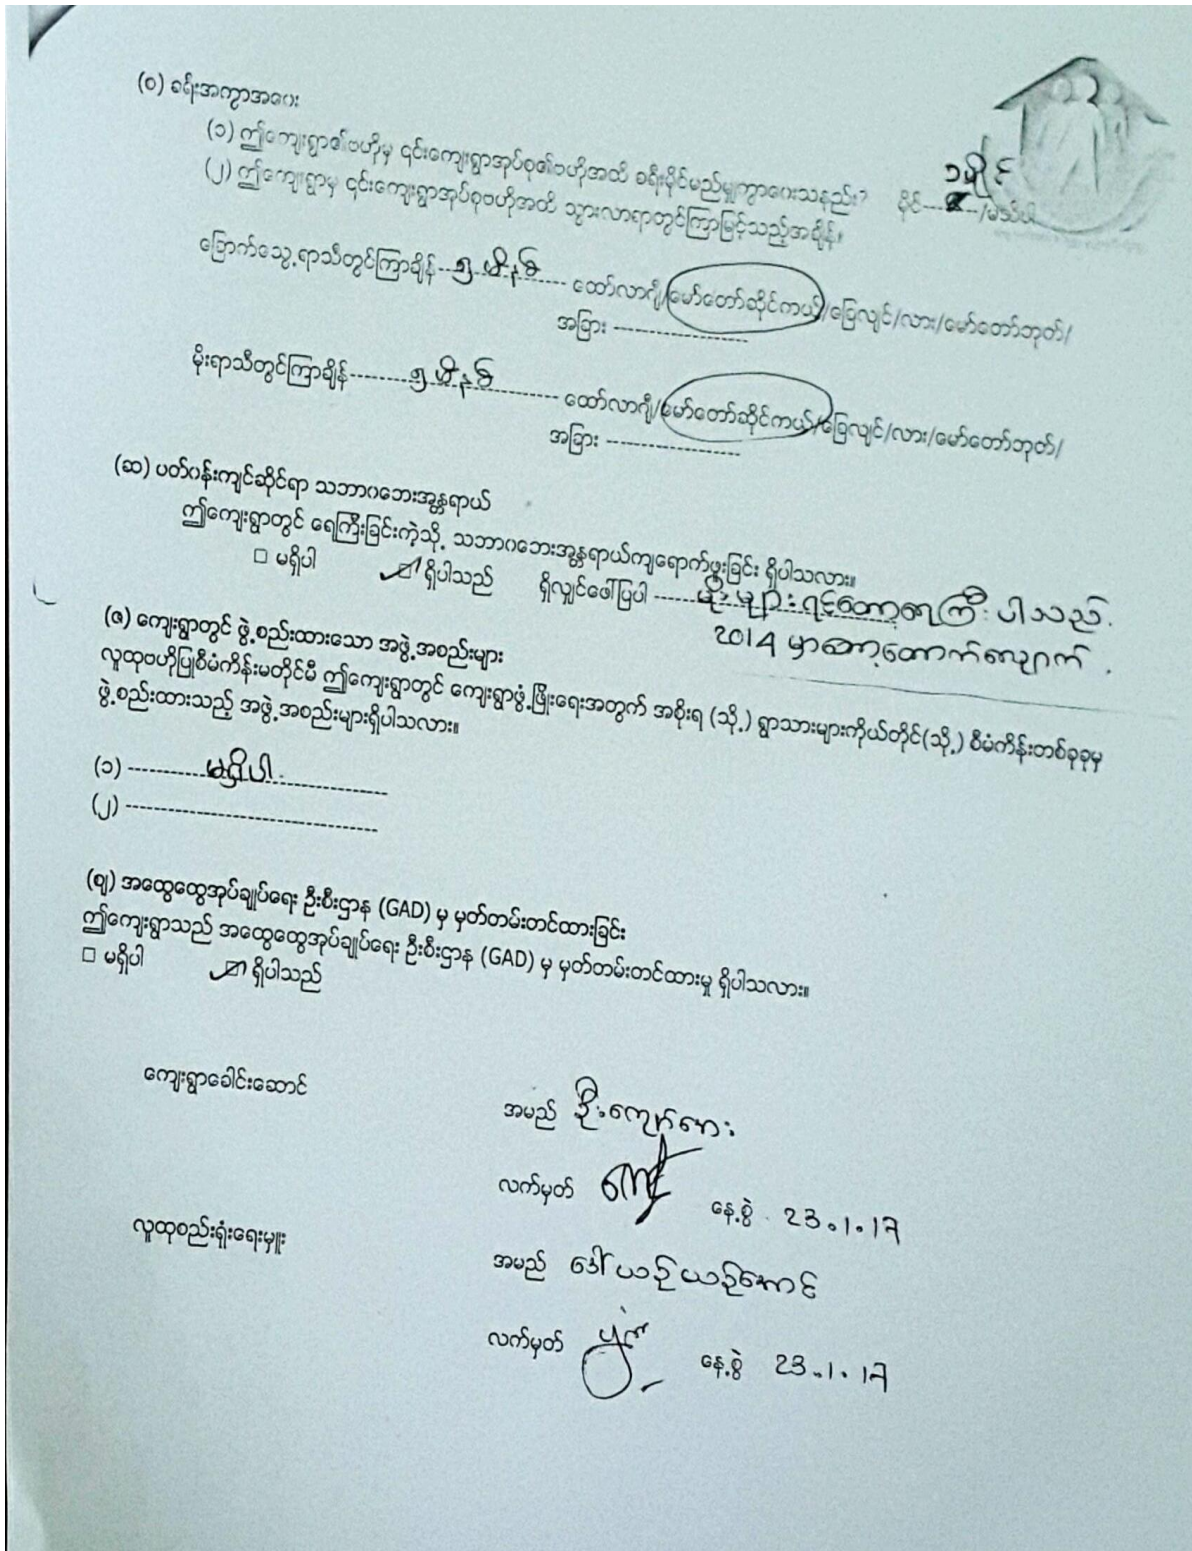 (စ) ခရီးအကွာအဝေး
(၁) ဤကျေးရွာ၏ဗဟိုမှ ၎င်းကျေးရွာအုပ်စု၏ဗဟိုအထိ ခရီးမိုင်မည်မျှကွာဝေးသနည်း? မိုင်-------/မသိပါ ၁မိုင်
(၂) ဤကျေးရွာမှ ၎င်းကျေးရွာအုပ်စုဗဟိုအထိ သွားလာရာတွင်ကြာမြင့်သည့်အချိန်။
ခြောက်သွေ့ရာသီတွင်ကြာချိန် ၅ မိနစ် ထော်လာဂျီ/မော်တော်ဆိုင်ကယ်/ခြေလျင်/လား/မော်တော်ဘုတ်/
အခြား ----------------
မိုးရာသီတွင်ကြာချိန် ၅ မိနစ် ထော်လာဂျီ/မော်တော်ဆိုင်ကယ်/ခြေလျင်/လား/မော်တော်ဘုတ်/
အခြား ----------------
(ဆ) ပတ်ဝန်းကျင်ဆိုင်ရာ သဘာဝဘေးအန္တရာယ်
ဤကျေးရွာတွင် ရေကြီးခြင်းကဲ့သို့ သဘာဝဘေးအန္တရာယ်ကျရောက်ဖူးခြင်း ရှိပါသလား။
□ မရှိပါ ☑ ရှိပါသည် ရှိလျှင်ဖေါ်ပြပါ မိုးများရင်တော့ရေကြီးပါသည်.
2014 မှာ
(ဇ) ကျေးရွာတွင် ဖွဲ့စည်းထားသော အဖွဲ့အစည်းများ
လူထုဗဟိုပြုစီမံကိန်းမတိုင်မီ ဤကျေးရွာတွင် ကျေးရွာဖွံ့ဖြိုးရေးအတွက် အစိုးရ (သို့) ရွာသားများကိုယ်တိုင်(သို့) စီမံကိန်းတစ်ခုခုမှ
ဖွဲ့စည်းထားသည့် အဖွဲ့အစည်းများရှိပါသလား။
(၁) မရှိပါ.
(၂) --------------------------------
(ဈ) အထွေထွေအုပ်ချုပ်ရေး ဦးစီးဌာန (GAD) မှ မှတ်တမ်းတင်ထားခြင်း
ဤကျေးရွာသည် အထွေထွေအုပ်ချုပ်ရေး ဦးစီးဌာန (GAD) မှ မှတ်တမ်းတင်ထားမှု ရှိပါသလား။
□ မရှိပါ ☑ ရှိပါသည်
ကျေးရွာခေါင်းဆောင်
အမည် ဦးကျော်အေး
လက်မှတ် နေ့စွဲ 23.1.17
လူထုစည်းရုံးရေးမှူး
အမည် ဒေါ်ယဉ်ယဉ်အောင်
လက်မှတ် နေ့စွဲ 23.1.17